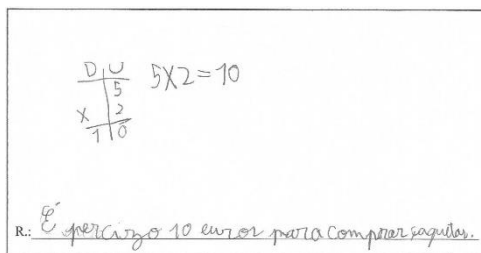 D U
5
x 2
1 0
5x2=10
R.: É percizo 10 euros para comprar saquetas.